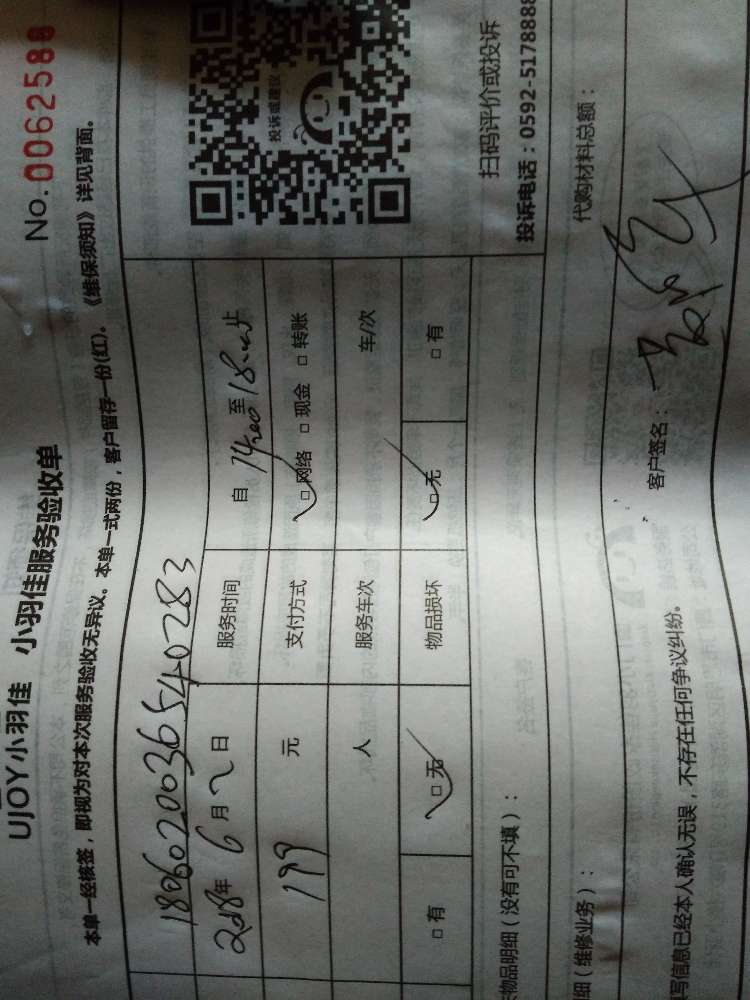 UJOY小羽佳 小羽佳服务验收单
No.0062588
本单一经核签，即视为对本次服务验收无异议。本单一式两份，客户留存一份(红)。《维保须知》详见背面。
180602003654 0283
2018年 6月 2日 服务时间 自 14:00 至 18:00 止
199 元 支付方式 □网络 □现金 □转账
人 服务车次 车/次
□有 □无 物品损坏 □无 □有
投诉或建议
扫码评价或投诉
投诉电话：0592-5178888
物品明细（没有可不填）：
细（维修业务）： 代购材料总额：
客户签名：
写信息已经本人确认无误，不存在任何争议纠纷。